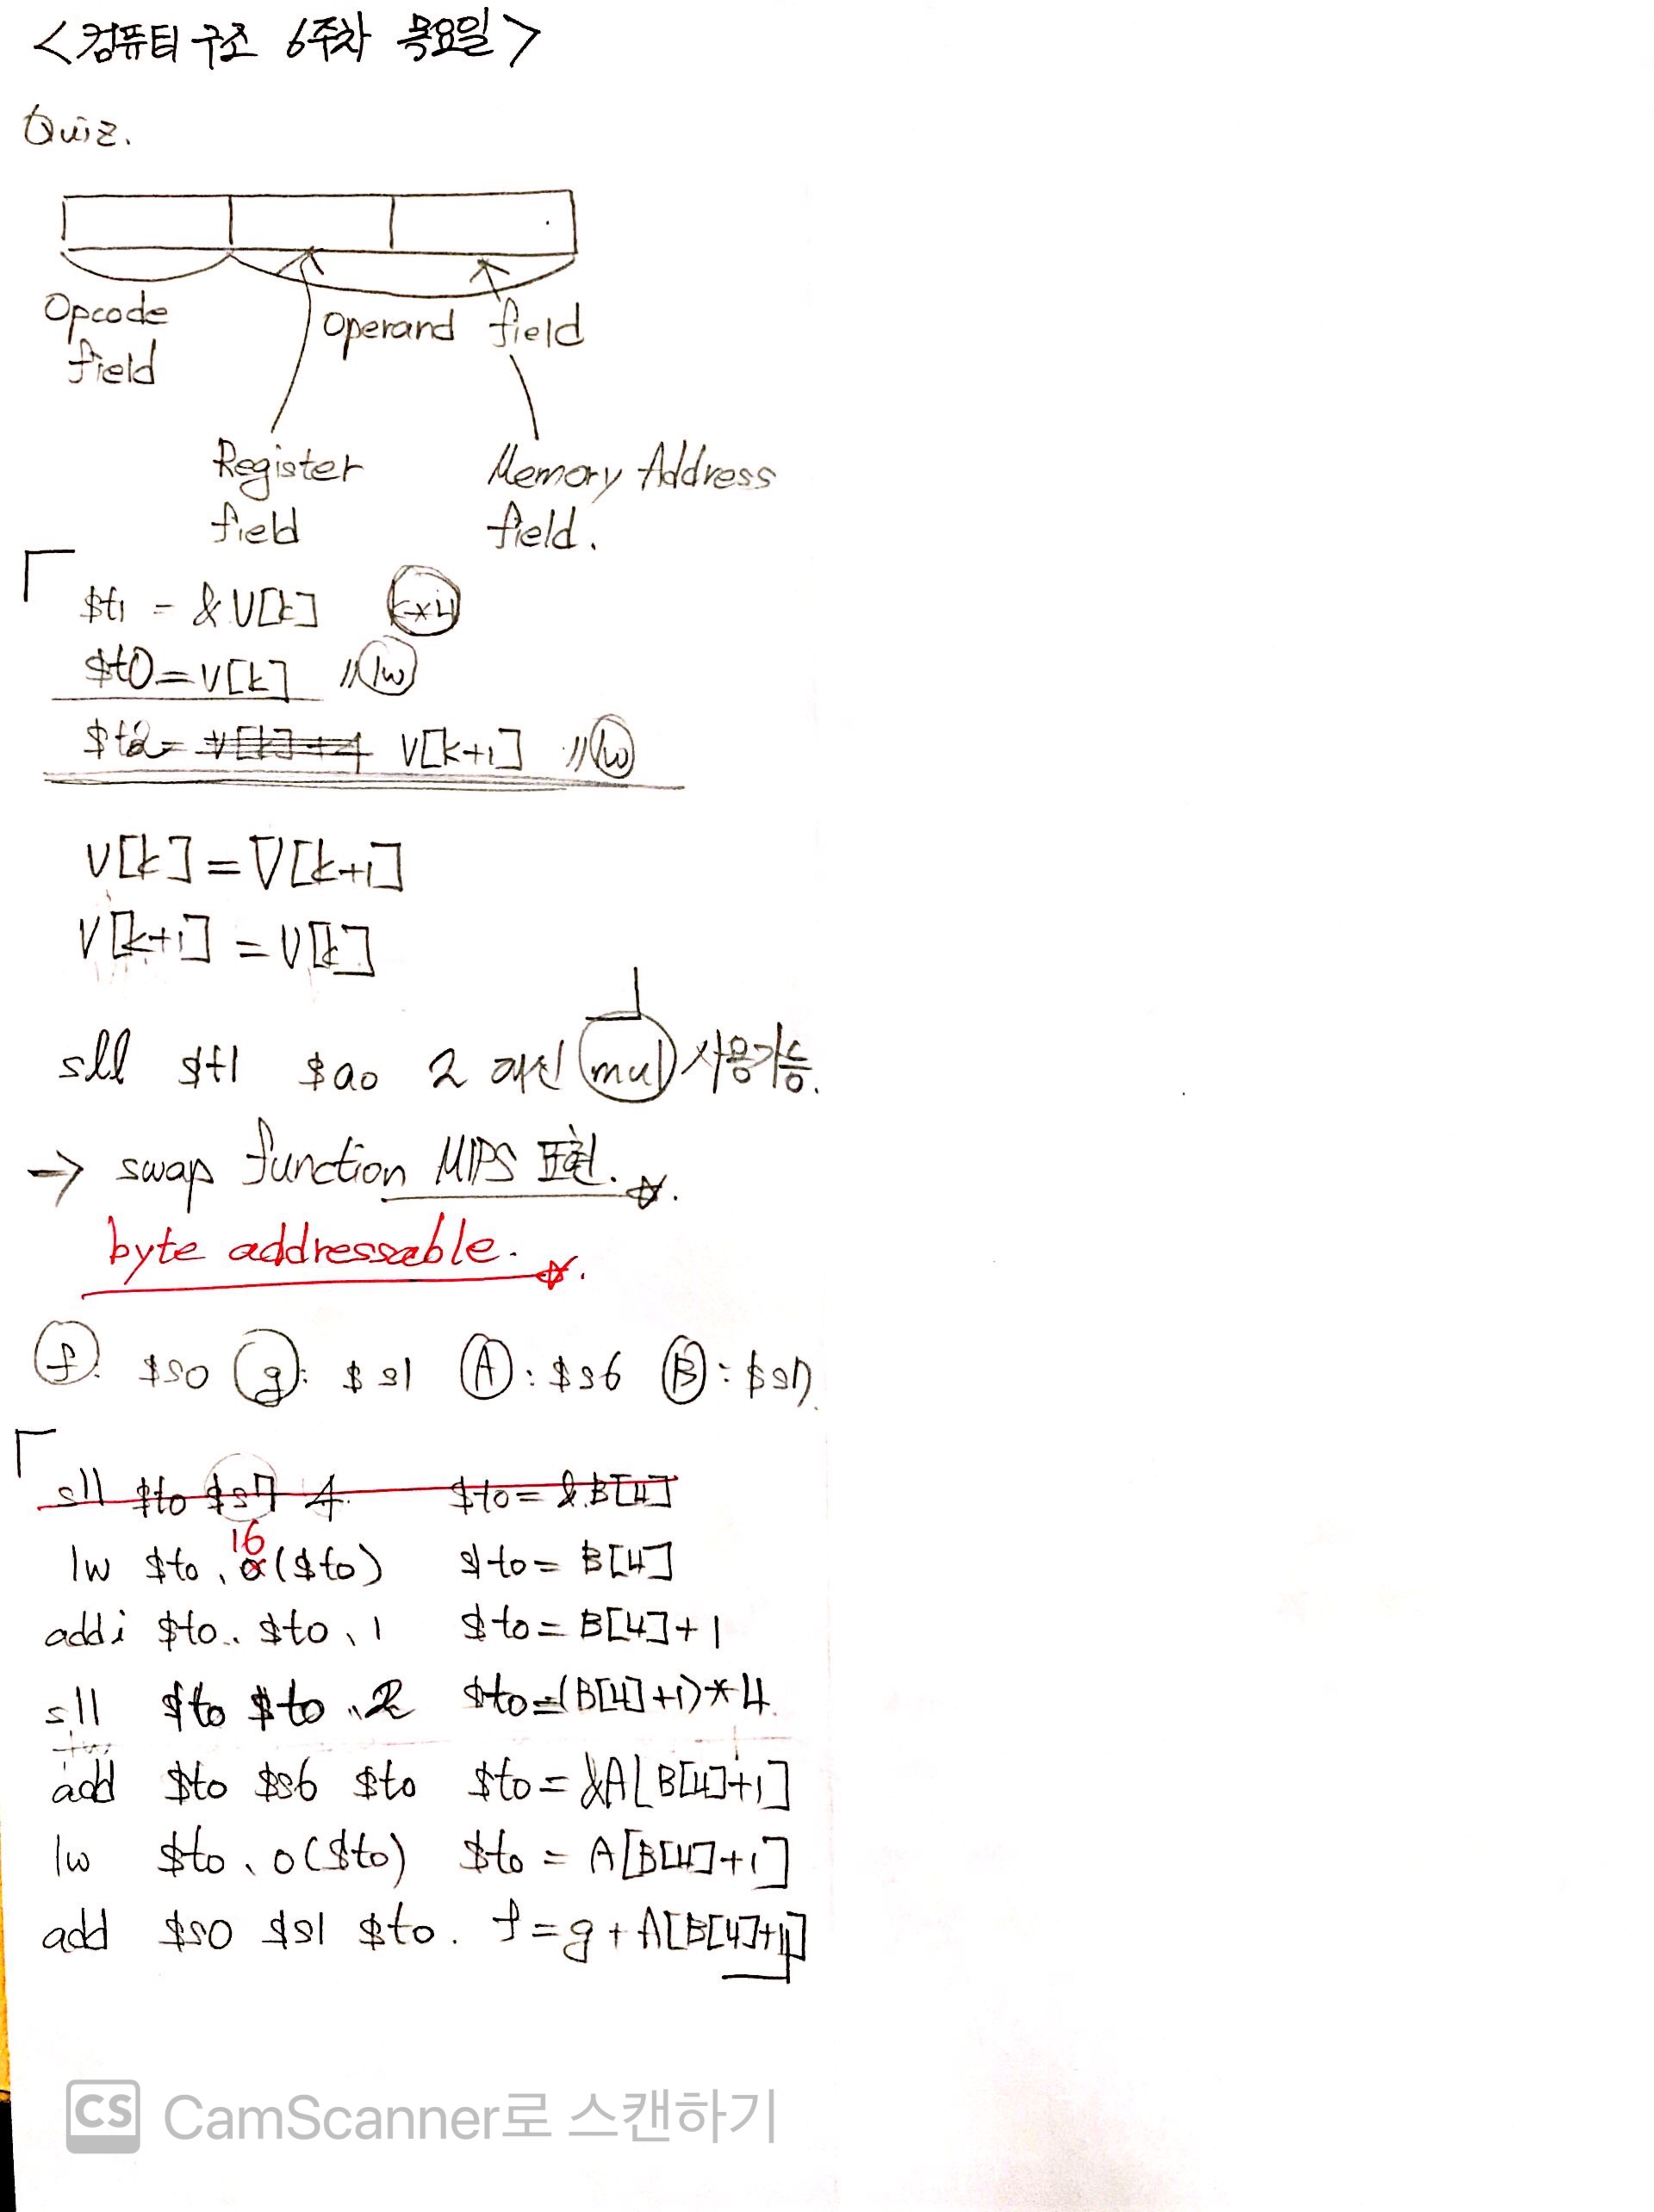 <컴퓨터 구조 6주차 목요일>
Quiz.
Opcode field
Operand field
Register field
Memory Address field.
$t1 = &V[k] k*4
$t0 = V[k] // lw
$t2 = V[k]+4 V[k+1] // lw
V[k] = V[k+1]
V[k+1] = V[k]
sll $t1 $a0 2 대신 mul 사용가능.
→ swap function MIPS 표현. ☆.
byte addressable. ☆.
f: $s0 g: $s1 A: $s6 B: $s7
sll $t0 $s7 4 $t0 = &B[4]
lw $t0, 16($t0) $t0 = B[4]
addi $t0, $t0, 1 $t0 = B[4]+1
sll $t0 $t0, 2 $t0 = (B[4]+1)*4
add $t0 $s6 $t0 $t0 = &A[B[4]+1]
lw $t0, 0($t0) $t0 = A[B[4]+1]
add $s0 $s1 $t0. f = g + A[B[4]+1]
CS CamScanner로 스캔하기